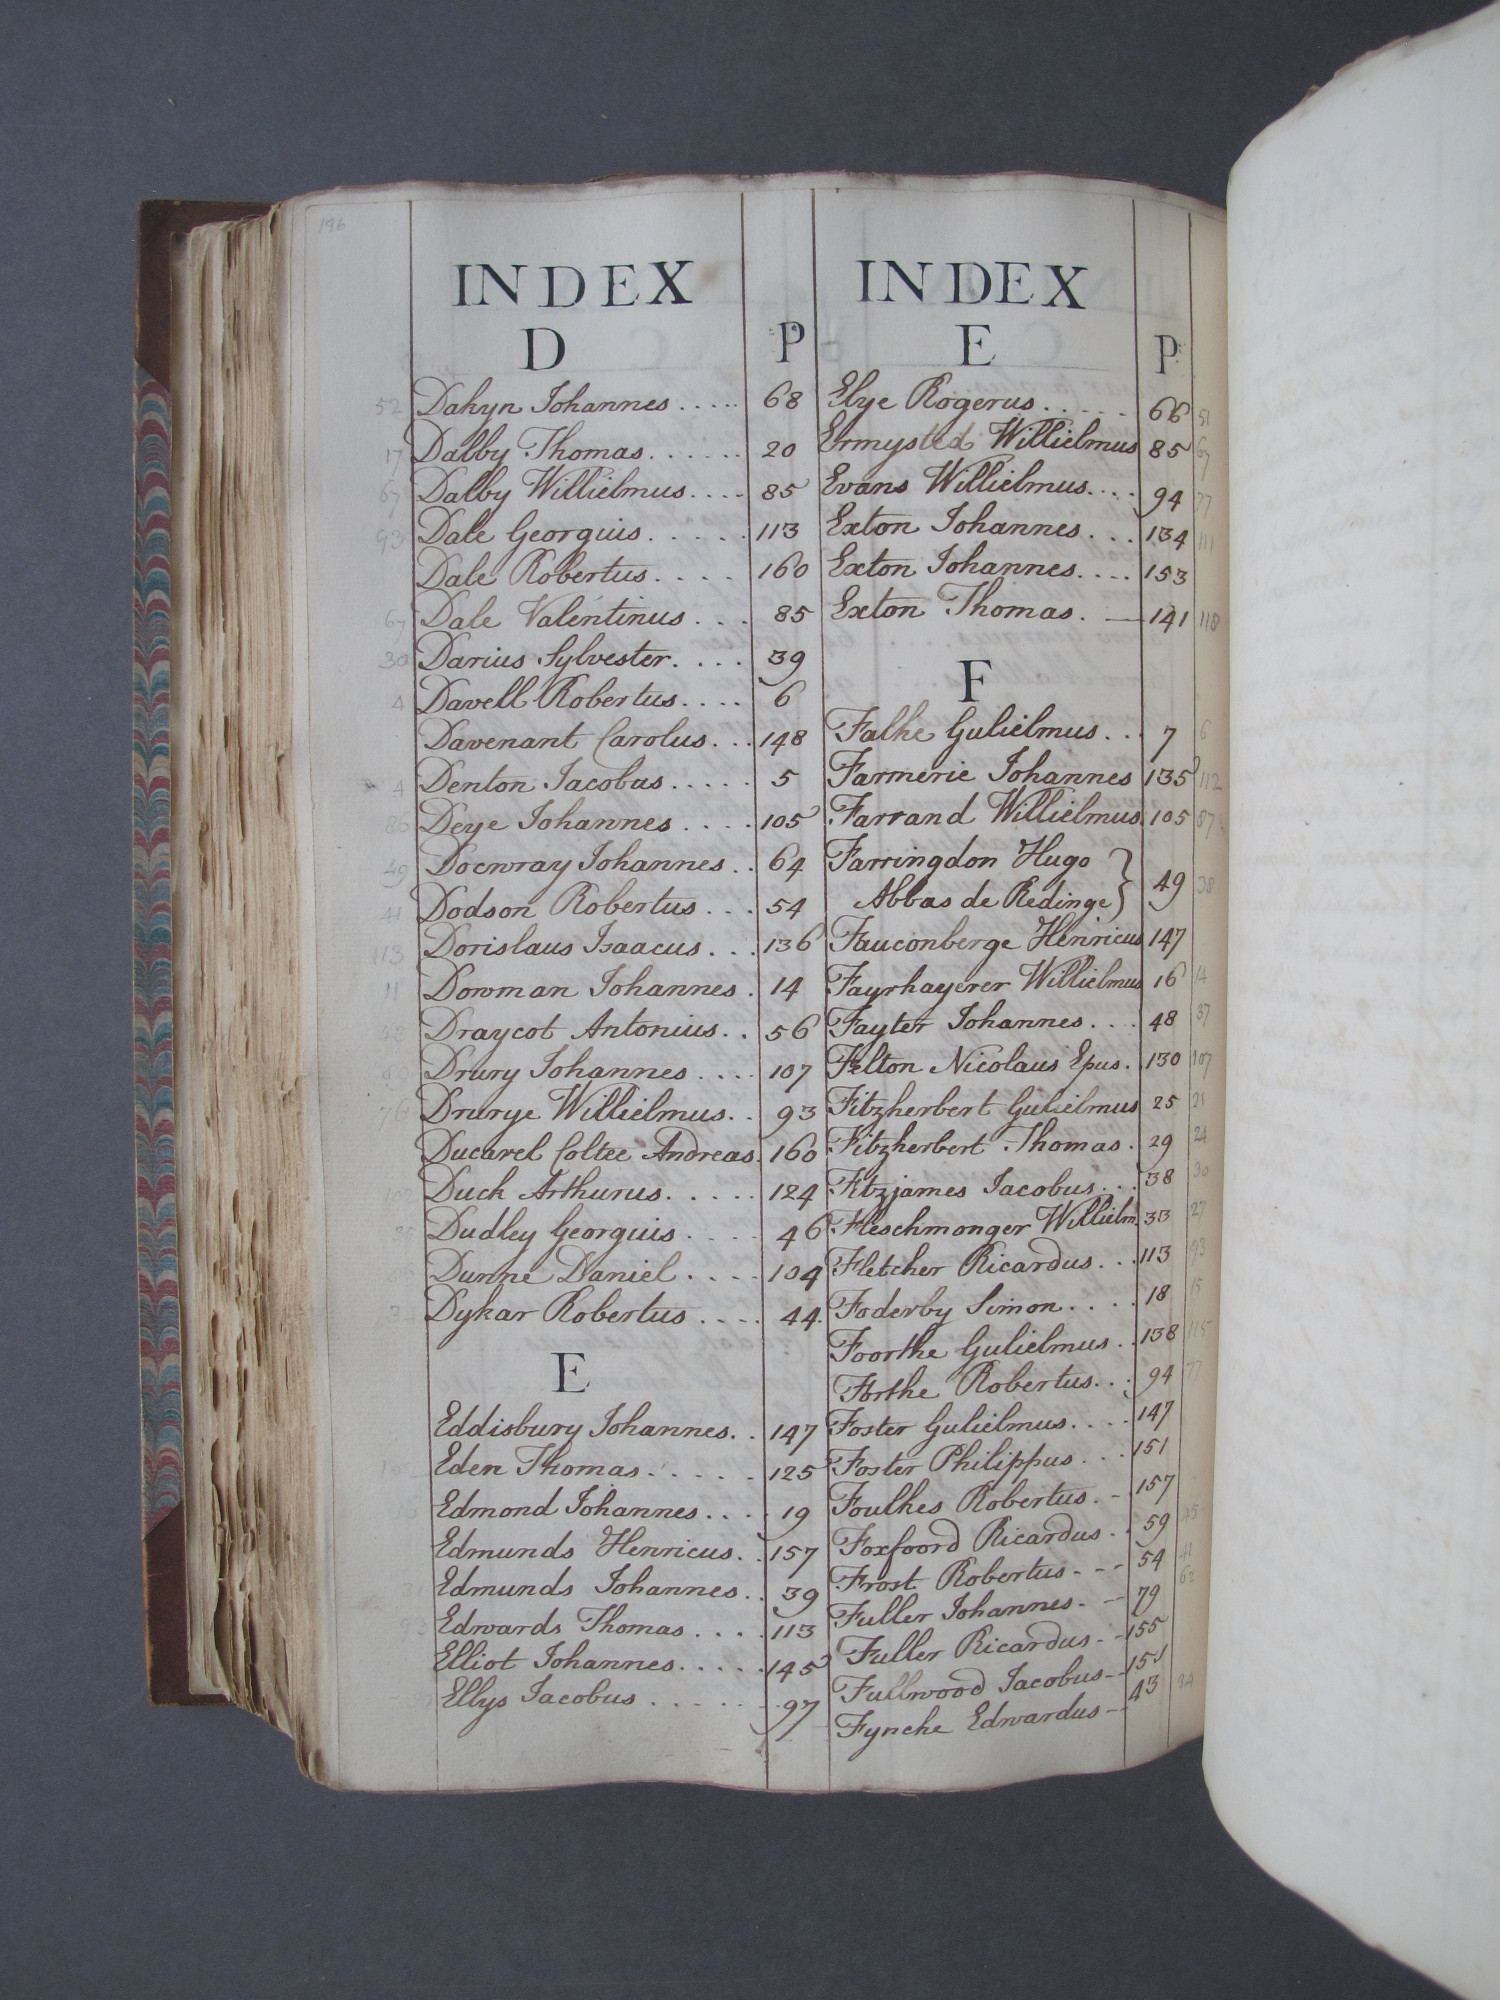 196
INDEX
D P
52 Dakyn Johannes ..... 68
17 Dalby Thomas ...... 20
67 Dalby Willielmus .... 85
93 Dale Georgius ..... 113
Dale Robertus .... 160
67 Dale Valentinus ... 85
30 Darius Sylvester .... 39
4 Davell Robertus .... 6
Davenant Carolus ... 148
4 Denton Jacobus ..... 5
86 Deye Johannes .... 105
49 Docwray Johannes .. 64
41 Dodson Robertus ... 54
113 Dorislaus Isaacus ... 136
11 Dowman Johannes . 14
43 Draycot Antonius .. 56
Drury Johannes .... 107
76 Drurye Willielmus .. 93
Ducarel Coltee Andreas. 160
102 Duck Arthurus ..... 124
Dudley Georgius .... 46
Dunne Daniel .... 104
Dykar Robertus .... 44.
E
Eddisbury Johannes .. 147
Eden Thomas ..... 125
Edmond Johannes .... 19
Edmunds Henricus .. 157
Edmunds Johannes .. 39
93 Edwards Thomas .... 113
Elliot Johannes ..... 145
Ellys Jacobus ...... 97
INDEX
E P
Elye Rogerus ..... 66 51
Ermysted Willielmus 85 67
Evans Willielmus .... 94 77
Exton Johannes ... 134 111
Exton Johannes .... 153
Exton Thomas . — 141 118
F
Falke Gulielmus ... 7 6
Farmerie Johannes 135 112
Farrand Willielmus. 105 87
Farringdon Hugo
Abbas de Redinge } 49 38
Fauconberge Henricus 147
Fayrhayerer Willielmus 16 14
Fayter Johannes .... 48 37
Felton Nicolaus Epus. 130 107
Fitzherbert Gulielmus 25 21
Fitzherbert Thomas . 29 24
Fitzjames Jacobus ... 38 30
Fleschmonger Willielm. 33 27
Fletcher Ricardus ... 113 93
Foderby Simon .... 18 15
Foorthe Gulielmus .. 138 115
Forthe Robertus ... 94 77
Foster Gulielmus .... 147
Foster Philippus ... 151
Foulkes Robertus . - 157
Foxfoord Ricardus .. 59 45
Frost Robertus - - - 54 41
Fuller Johannes . - 79 62
Fuller Ricardus - - 155
Fullwood Jacobus - - 151
Fynche Edwardus - - 43 34